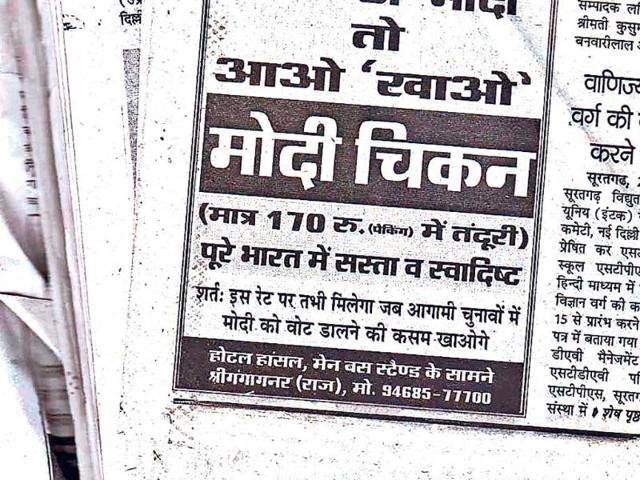 तो
आओ 'खाओ'
मोदी चिकन
(मात्र 170 रु. (पेकिंग) में तंदूरी)
पूरे भारत में सस्ता व स्वादिष्ट
शर्त: इस रेट पर तभी मिलेगा जब आगामी चुनावों में
मोदी को वोट डालने की कसम खाओगे
होटल हांसल, मेन बस स्टैण्ड के सामने
श्रीगंगानगर (राज), मो. 94685-77700
सम्पादक
श्रीमती
बनवारीलाल
वाणिज्य
वर्ग की
करने
सूरतगढ़,
सूरतगढ़ विद्युत
यूनिय (इंटक)
कमेटी, नई दिल्ली
प्रेषित कर
स्कूल एसटीपी
हिन्दी माध्यम में
विज्ञान वर्ग की
15 से प्रारंभ करने
पत्र में बताया गया
डीएवी मैनेजमेंट
एसटीडीएवी
एसटीपीएस,
संस्था में शेष